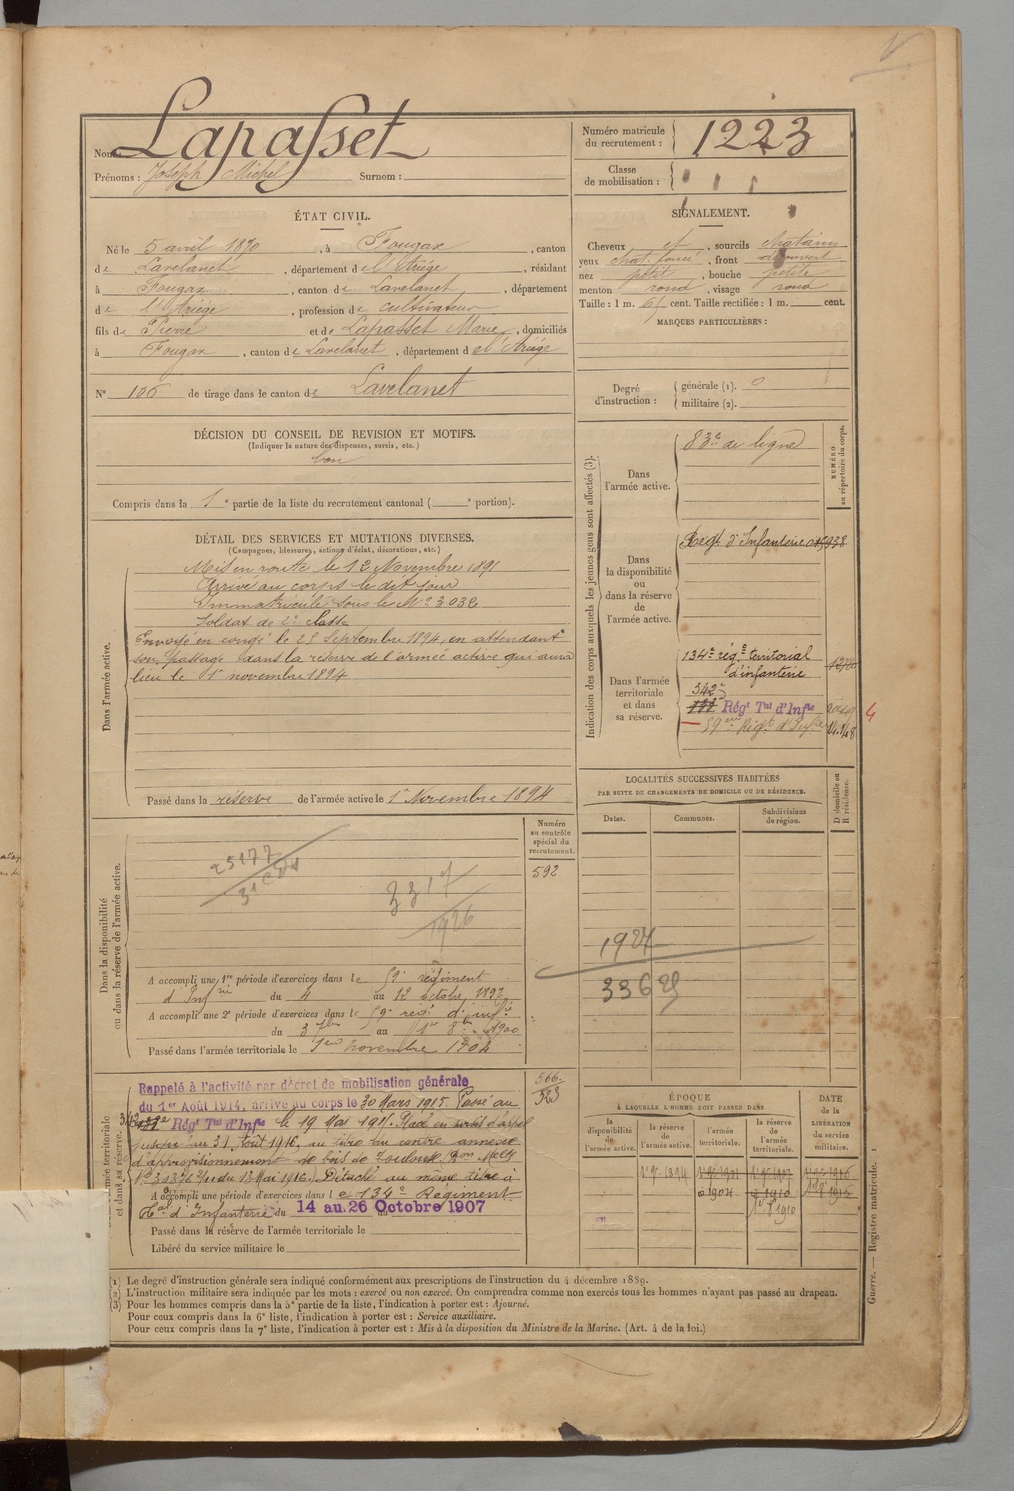 Nom : Lapasset
Prénoms : Joseph Michel Surnom :
Numéro matricule du recrutement : 1223
Classe de mobilisation :
ÉTAT CIVIL.
Né le 5 avril 1870, à Fougax, canton
de Lavelanet, département de l'Ariége, résidant
à Fougax, canton de Lavelanet, département
de l'Ariége, profession de cultivateur
fils de Pierre et de Lapasset Marie, domiciliés
à Fougax, canton de Lavelanet, département de l'Ariége
N° 106 de tirage dans le canton de Lavelanet
SIGNALEMENT.
Cheveux et, sourcils chatains
yeux chat. foncé, front découvert
nez petit, bouche petite
menton rond, visage rond
Taille : 1 m. 65 cent. Taille rectifiée : 1 m. cent.
MARQUES PARTICULIÈRES :
Degré d'instruction : générale (1). 0
militaire (2).
DÉCISION DU CONSEIL DE REVISION ET MOTIFS.
(Indiquer la nature des dispenses, sursis, etc.)
bon
Compris dans la 1e partie de la liste du recrutement cantonal ( e portion).
DÉTAIL DES SERVICES ET MUTATIONS DIVERSES.
(Campagnes, blessures, actions d'éclat, décorations, etc.)
Dans l'armée active.
Mis en route le 12 Novembre 1891
Arrivé au corps le dit jour
Immatriculé sous le N° 3032
Soldat de 2e classe
Envoyé en congé le 28 Septembre 1894, en attendant
son passage dans la réserve de l'armée active qui aura
lieu le 1r novembre 1894
Passé dans la réserve de l'armée active le 1r Novembre 1894
Indication des corps auxquels les jeunes gens sont affectés (3).
NUMÉRO au répertoire du corps.
Dans l'armée active.
83e de ligne
Dans la disponibilité ou dans la réserve de l'armée active.
Régt d'Infanterie
Dans l'armée territoriale et dans sa réserve.
134e rég.t territorial
d'infanterie
342e
Régt Tal d'Infie
59eme Régt d'Infie
4
LOCALITÉS SUCCESSIVES HABITÉES
PAR SUITE DE CHANGEMENTS DE DOMICILE OU DE RÉSIDENCE.
Dates. Communes. Subdivisions de région. D domicile ou R résidence.
1927
33629
Numéro au contrôle spécial du recrutement.
592
Dans la disponibilité ou dans la réserve de l'armée active.
25177
3317
1926
A accompli une 1re période d'exercices dans le 59e régiment
d'Infrie du 4 au 13 octobre 1897
A accompli une 2e période d'exercices dans le 59e régt d'infie
du 3 7bre au 1900
Passé dans l'armée territoriale le 1er novembre 1904
armée territoriale et dans sa réserve.
566
523
Rappelé à l'activité par décret de mobilisation générale
du 1er Août 1914, arrivé au corps le 30 Mars 1915. Passé au
342 Régt Tal d'Infie le 19 Mai 1915. Placé en sursis d'appel
jusqu'au 31 Août 1916, au titre du centre annexe
d'approvisionnement de bois de Toulouse.
du 13 Mai 1916. Détaché au même titre à
A accompli une période d'exercices dans le 134e Régiment
tal d'Infanterie du 14 au 26 Octobre 1907
Passé dans la réserve de l'armée territoriale le
Libéré du service militaire le
ÉPOQUE
À LAQUELLE L'HOMME DOIT PASSER DANS
la disponibilité de l'armée active. la réserve de l'armée active. l'armée territoriale. la réserve de l'armée territoriale.
DATE de la LIBÉRATION du service militaire.
(1) Le degré d'instruction générale sera indiqué conformément aux prescriptions de l'instruction du 4 décembre 1889.
(2) L'instruction militaire sera indiquée par les mots : exercé ou non exercé. On comprendra comme non exercés tous les hommes n'ayant pas passé au drapeau.
(3) Pour les hommes compris dans la 5e partie de la liste, l'indication à porter est : Ajourné.
Pour ceux compris dans la 6e liste, l'indication à porter est : Service auxiliaire.
Pour ceux compris dans la 7e liste, l'indication à porter est : Mis à la disposition du Ministre de la Marine. (Art. 4 de la loi.)
Guerre. — Registre matricule. 1